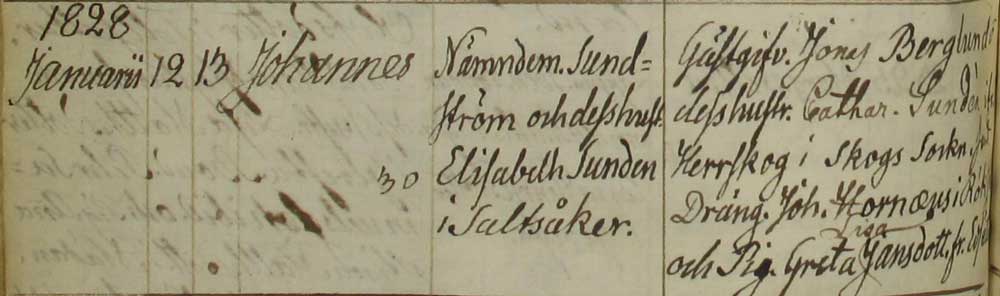 1828
Januarii 12 13 Johannes
Nämndem. Sund=
ström och dess hust.
30 Elisabeth Sunden
i Saltsåker.
Gästgifv. Jonas Berglund
dess hustr. Cathar. Sundén
Herrskog i Skogs Sockn
Dräng. Joh. Hornæus i
Lisa
och Pig. Greta Jansdott. fr.